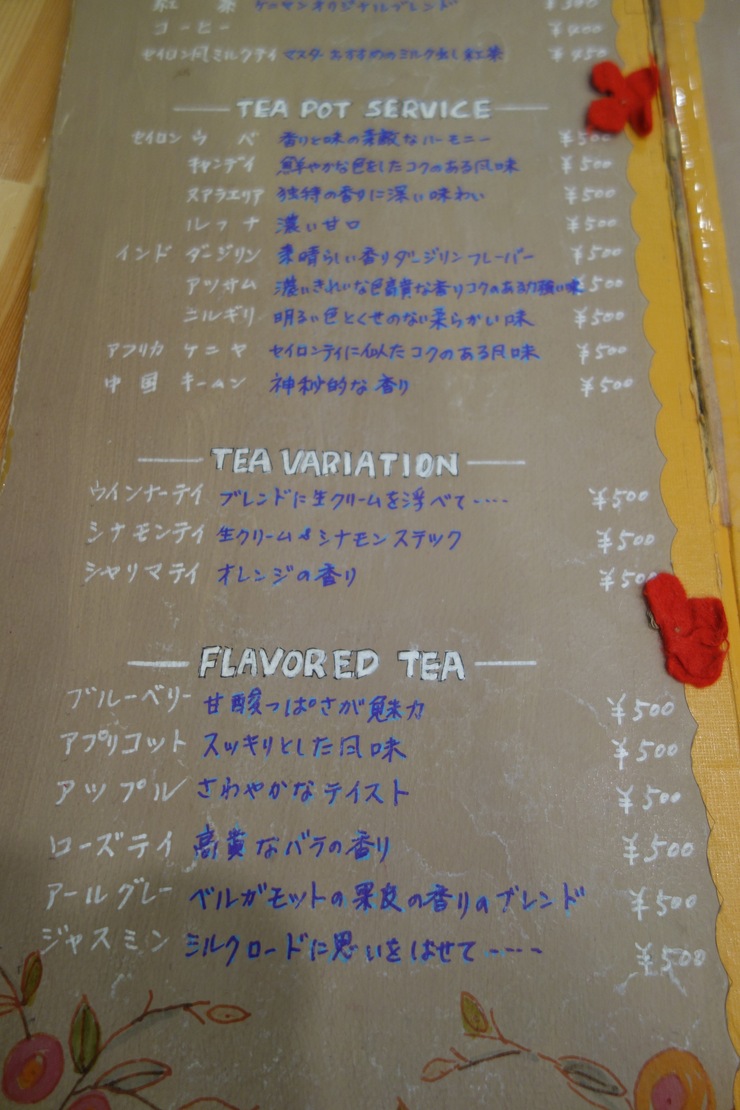 紅 茶 ケーマンオリジナルブレンド ¥500
コーヒー ¥400
セイロン風ミルクティ マスターおすすめのミルク出し紅茶 ¥450
TEA POT SERVICE
セイロン ウバ 香りと味の素敵なハーモニー ¥500
キャンディ 鮮やかな色をしたコクのある風味 ¥500
ヌアラエリア 独特の香りに深い味わい ¥500
ルフナ 濃い甘口 ¥500
インド ダージリン 素晴らしい香りダージリンフレーバー ¥500
アッサム 濃いきれいな色高貴な香りコクのある力強い味 ¥500
ニルギリ 明るい色とくせのない柔らかい味 ¥500
アフリカ ケニヤ セイロンティに似たコクのある風味 ¥500
中国 キームン 神秘的な香り ¥500
TEA VARIATION
ウインナーティ ブレンドに生クリームを浮べて---- ¥500
シナモンティ 生クリーム&シナモンステック ¥500
シャリマティ オレンジの香り ¥500
FLAVORED TEA
ブルーベリー 甘酸っぱさが魅力 ¥500
アプリコット スッキリとした風味 ¥500
アップル さわやかなテイスト ¥500
ローズティ 高貴なバラの香り ¥500
アールグレー ベルガモットの果皮の香りのブレンド ¥500
ジャスミン ミルクロードに思いをはせて---- ¥500